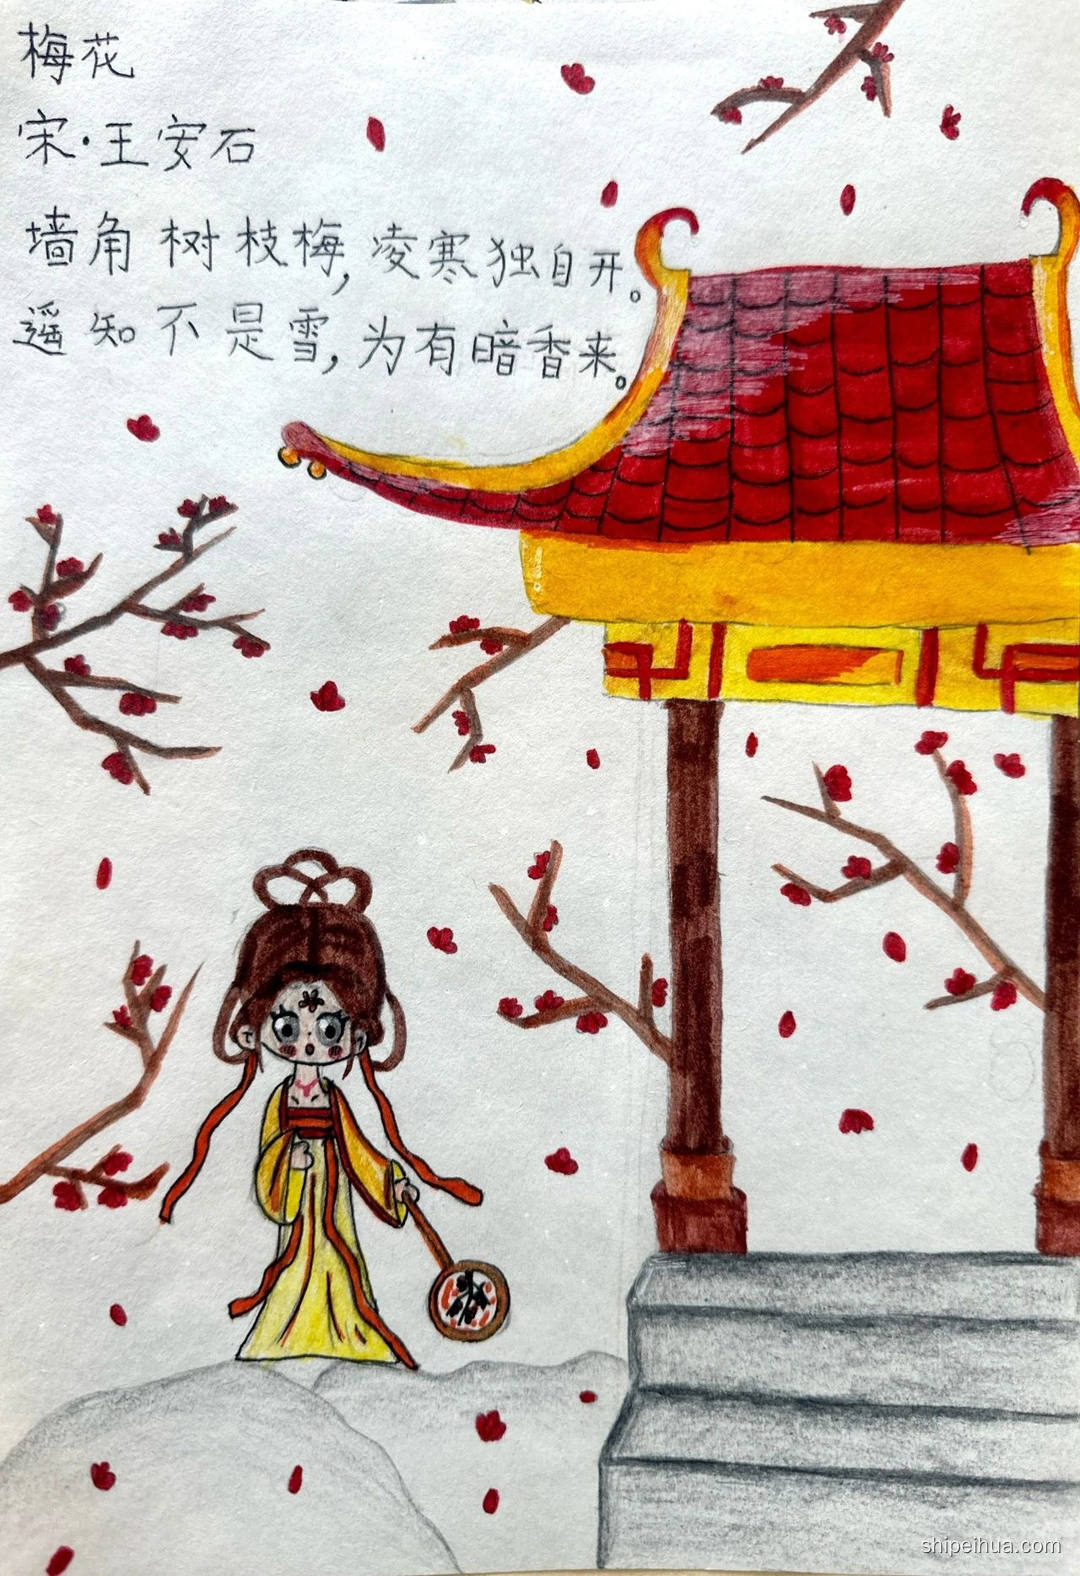 梅花
宋·王安石
墙角树枝梅,凌寒独自开。
遥知不是雪,为有暗香来。
shipeihua.com